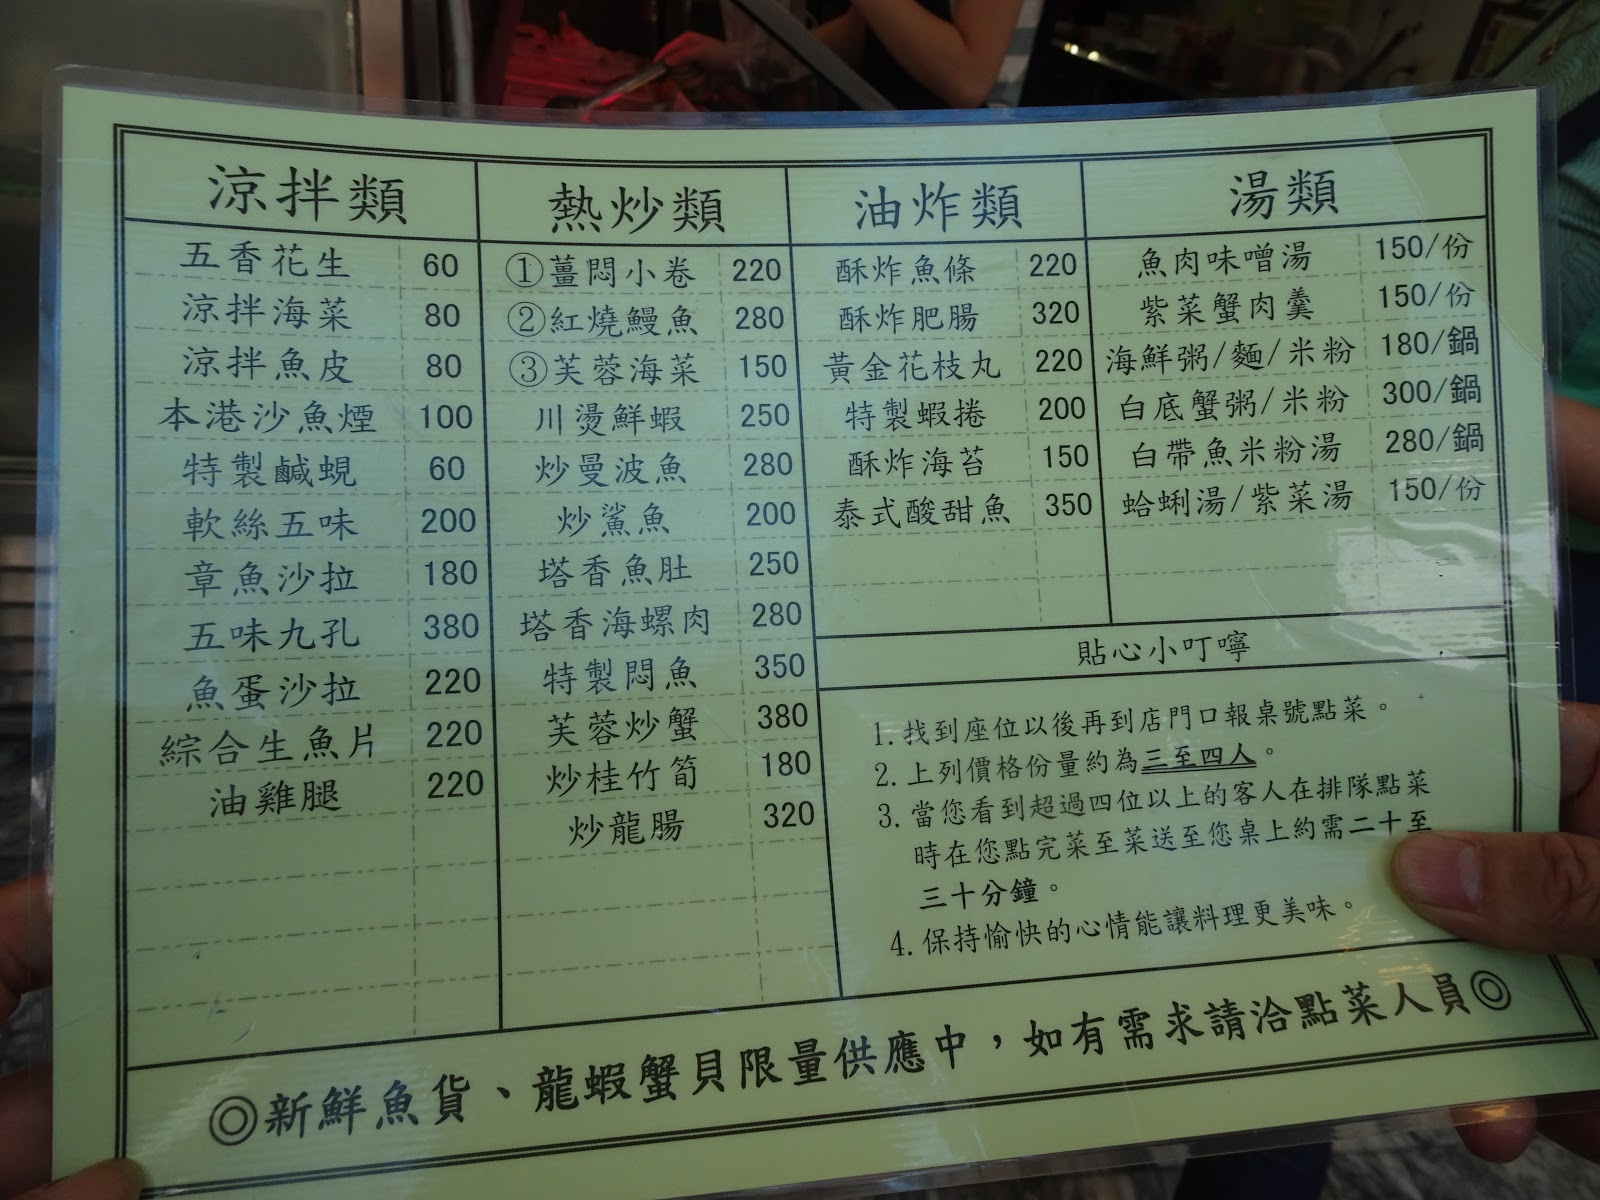 涼拌類
五香花生 60
涼拌海菜 80
涼拌魚皮 80
本港沙魚煙 100
特製鹹蜆 60
軟絲五味 200
章魚沙拉 180
五味九孔 380
魚蛋沙拉 220
綜合生魚片 220
油雞腿 220
熱炒類
①薑悶小卷 220
②紅燒鰻魚 280
③芙蓉海菜 150
川燙鮮蝦 250
炒曼波魚 280
炒鯊魚 200
塔香魚肚 250
塔香海螺肉 280
特製悶魚 350
芙蓉炒蟹 380
炒桂竹筍 180
炒龍腸 320
油炸類
酥炸魚條 220
酥炸肥腸 320
黃金花枝丸 220
特製蝦捲 200
酥炸海苔 150
泰式酸甜魚 350
湯類
魚肉味噌湯 150/份
紫菜蟹肉羹 150/份
海鮮粥/麵/米粉 180/鍋
白底蟹粥/米粉 300/鍋
白帶魚米粉湯 280/鍋
蛤蜊湯/紫菜湯 150/份
貼心小叮嚀
1. 找到座位以後再到店門口報桌號點菜。
2. 上列價格份量約為三至四人。
3. 當您看到超過四位以上的客人在排隊點菜
時在您點完菜至菜送至您桌上約需二十至
三十分鐘。
4. 保持愉快的心情能讓料理更美味。
◎新鮮魚貨、龍蝦蟹貝限量供應中，如有需求請洽點菜人員◎